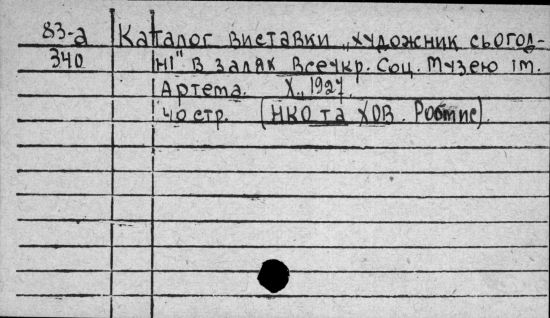 83-а Каталог виставки „художник сьогод-
340 ні" в залях Всеукр. Соц. Музею ім.
Артема. Х., 1927.
40 стр. (НКО та ХОВ. Робмис).